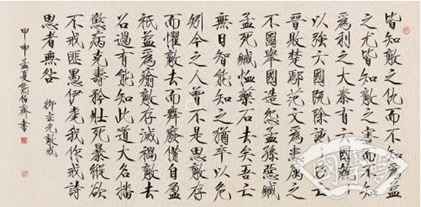 皆知敵之仇而不知爲益
之尤皆知敵之害而不知
爲利之大秦有六國兢兢
以强六國既除訑訑乃亡
晉敗楚鄢范文爲患厲之
不圖舉國造怨孟孫惡臧
孟死臧恤藥石去矣吾亡
無日智能知之猶卒以危
矧今之人曾不是思敵存
而懼敵去而舞廢備自盈
祇益爲瘉敵存滅禍敵去
召過有能知此道大名播
懲病克壽矜壯死暴縱欲
不戒匪愚伊耄我作戒詩
思者無咎 柳宗元敵戒
甲申孟夏熊伯齊書